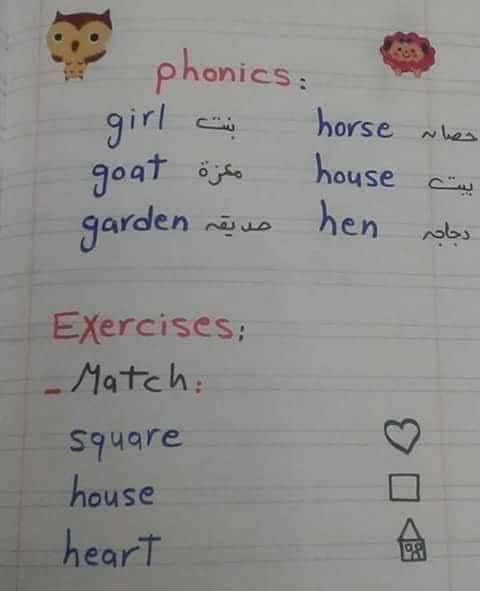 phonics:
girl بنت horse حصان
goat معزة house بيت
garden حديقه hen دجاجه
Exercises:
- Match:
square
house
heart